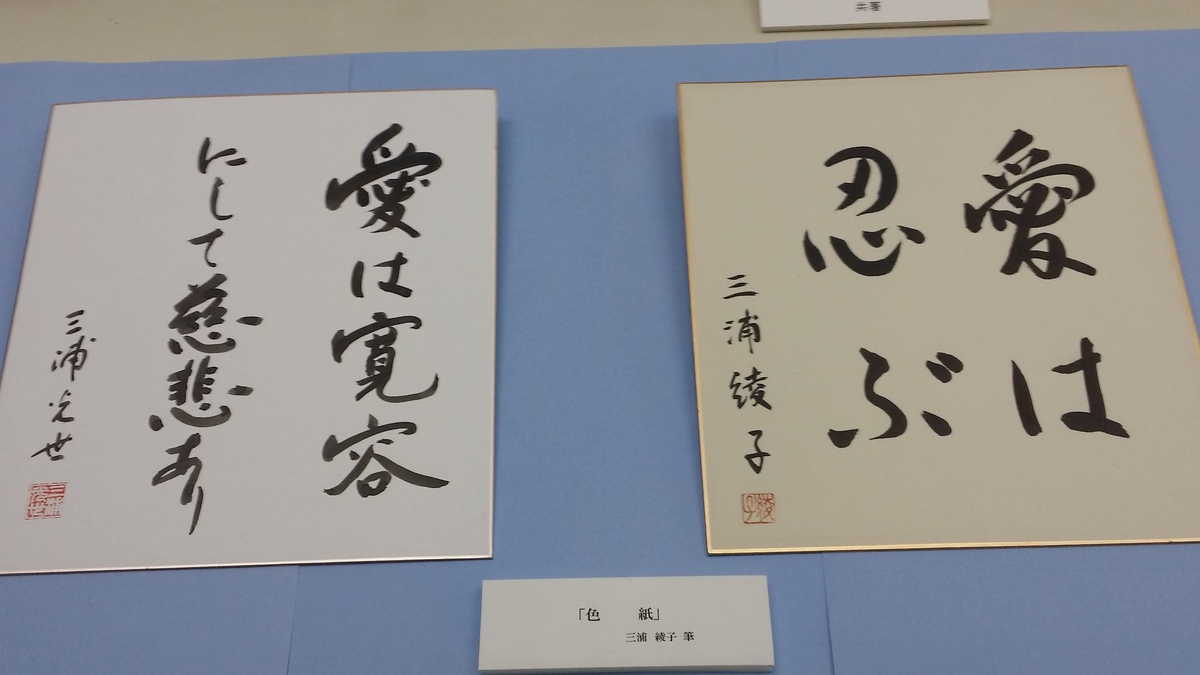 共著
愛は
忍ぶ
三浦綾子
綾子
愛は寛容
にして慈悲あり
三浦光世
「色　紙」
三浦 綾子 筆